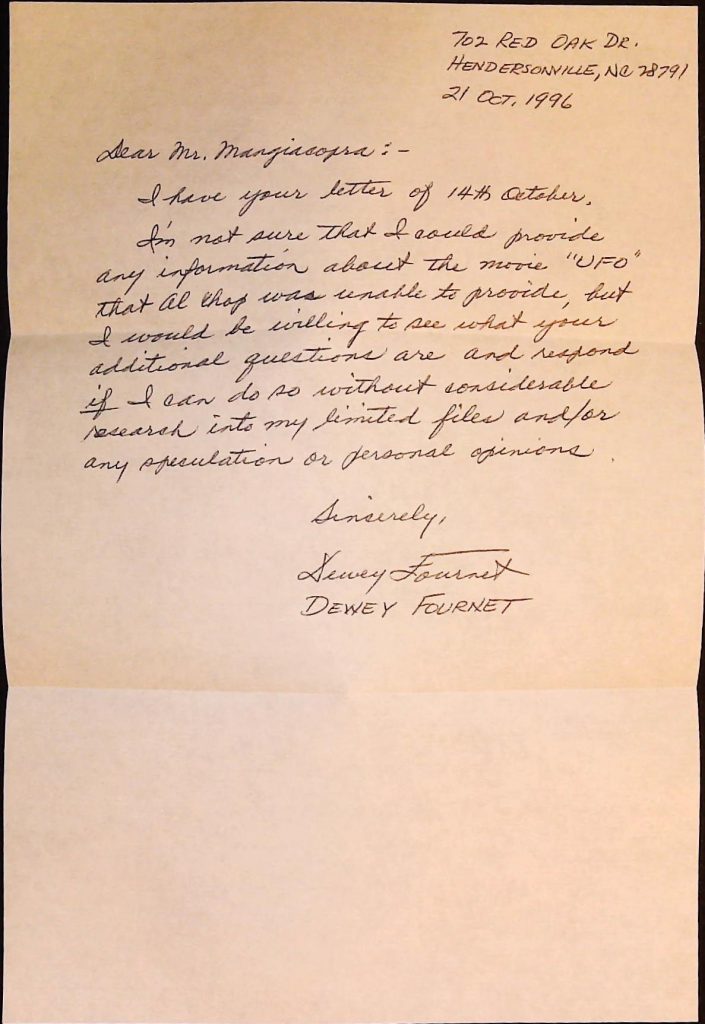 702 RED OAK DR.
HENDERSONVILLE, NC 28791
21 OCT. 1996
Dear Mr. Mangiacopra:-
I have your letter of 14th October.
I'm not sure that I could provide
any information about the movie "UFO"
that Al Chop was unable to provide, but
I would be willing to see what your
additional questions are and respond
if I can do so without considerable
research into my limited files and/or
any speculation or personal opinions.
Sincerely,
Dewey Fournet
DEWEY FOURNET